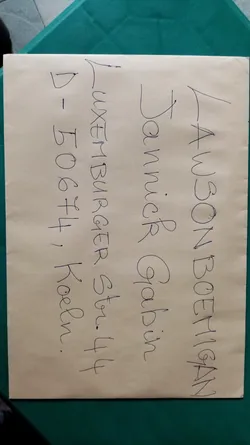 LAWSON BOEHIGAN
Jannick Gabin
LUXEMBURGER Str. 44
D - 50674, Koeln.